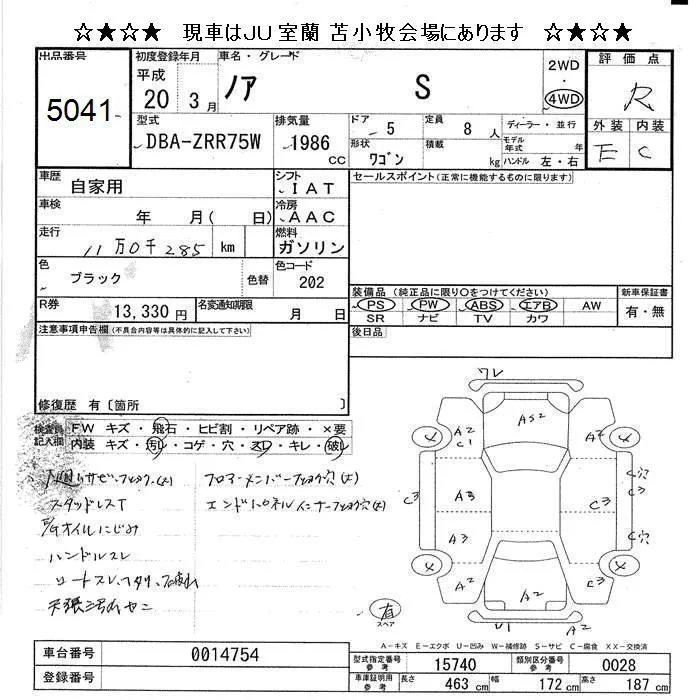 ☆★☆★ 現車はJU室蘭 苫小牧会場にあります ☆★☆★
出品番号 初度登録年月 車名・グレード 評価点
5041 平成 20 3月 ノア S 2WD ・ 4WD R
型式 排気量 ドア 5 定員 8人 ディーラー・並行 外装 内装
DBA-ZRR75W 1986 cc 形状 ワゴン 積載 kg モデル年式 年 ハンドル 左・右 E C
車歴 自家用 シフト IAT セールスポイント(正常に機能するものに限ります)
車検 年 月( 日) 冷房 AAC
走行 11万0千285 km 燃料 ガソリン
色 ブラック 色替 色コード 202
装備品 (純正品に限り○をつけてください) 新車保証書
R券 13,330円 名変通知期限 月 日 PS PW ABS エアB AW 有・無
SR ナビ TV カワ
注意事項申告欄(不具合内容等は具体的に記入して下さい) 後日品
修復歴 有〔箇所 〕
検査員記入欄 FW キズ・飛石・ヒビ割・リペア跡・×要
内装 キズ・汚レ・コゲ・穴・スレ・キレ・破レ
スタッドレスT
オイルにじみ
ハンドルスレ
ワレ
AS2
A2 C1 A2
C3 A3 C3 C穴
A3 C穴
A2 A2 C3
U1 A2
直 スペア
A-キズ E-エクボ U-凹み W-補修跡 S-サビ C-腐食 XX-交換済
車台番号 0014754 型式指定番号 参考 15740 類別区分番号 参考 0028
登録番号 車庫証明用 参考 長さ 463 cm 幅 172 cm 高さ 187 cm